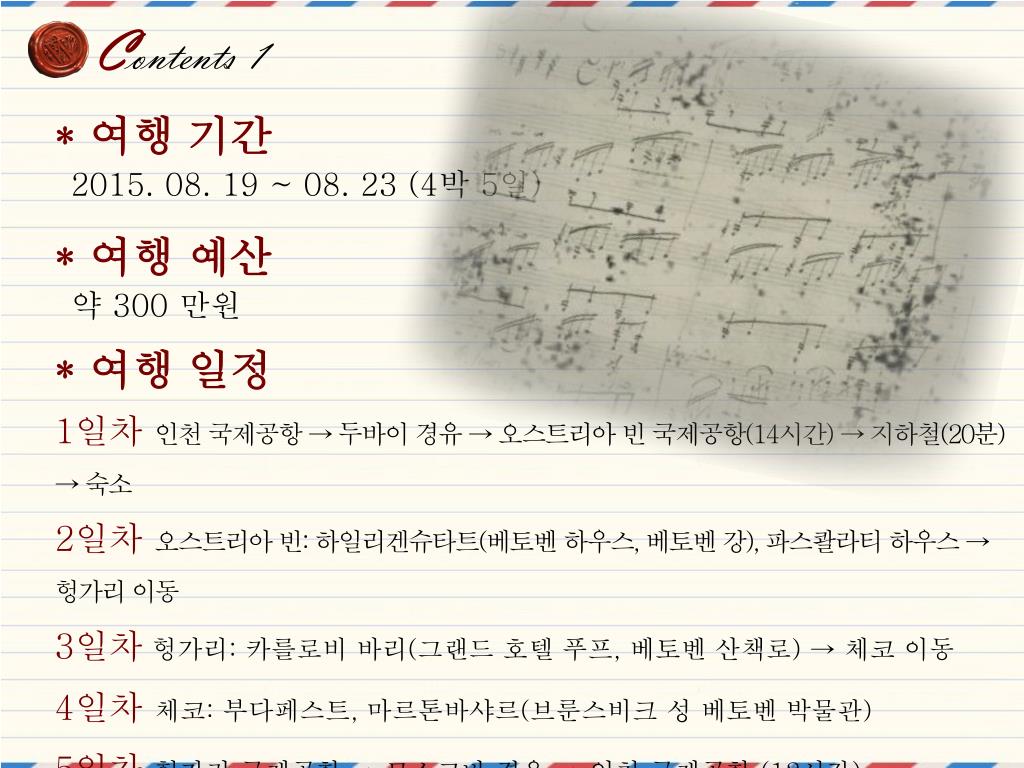 Contents 1
* 여행 기간
2015. 08. 19 ~ 08. 23 (4박 5일)
* 여행 예산
약 300 만원
* 여행 일정
1일차 인천 국제공항 → 두바이 경유 → 오스트리아 빈 국제공항(14시간) → 지하철(20분)
→ 숙소
2일차 오스트리아 빈: 하일리겐슈타트(베토벤 하우스, 베토벤 강), 파스콸라티 하우스 →
헝가리 이동
3일차 헝가리: 카를로비 바리(그랜드 호텔 푸프, 베토벤 산책로) → 체코 이동
4일차 체코: 부다페스트, 마르톤바샤르(브룬스비크 성 베토벤 박물관)
5일차 국제공항 → 모스크바 경유 → 인천 국제공항